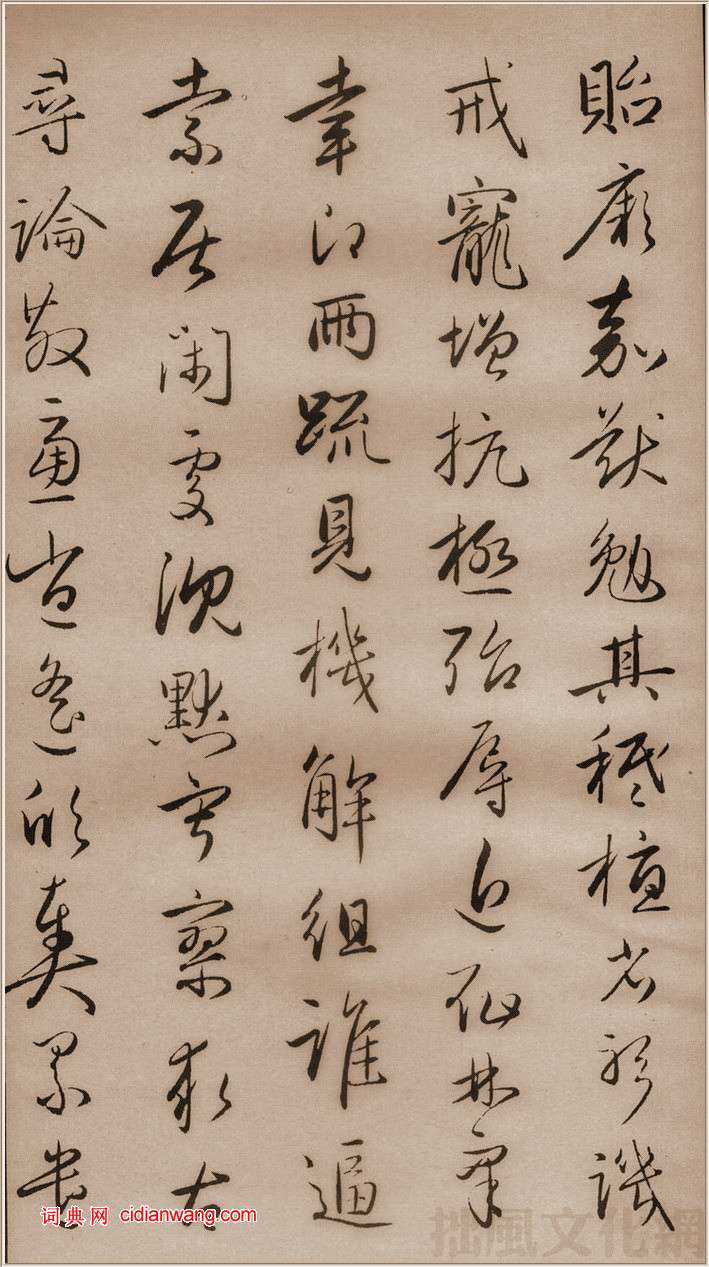 貽厥嘉猷勉其祗植省躬譏
戒寵增抗極殆辱近恥林皋
幸即兩疏見機解組誰逼
索居閑處沉默寂寥求古
尋論散慮逍遙欣奏累遣
词典网 cidianwang.com
拙風文化網